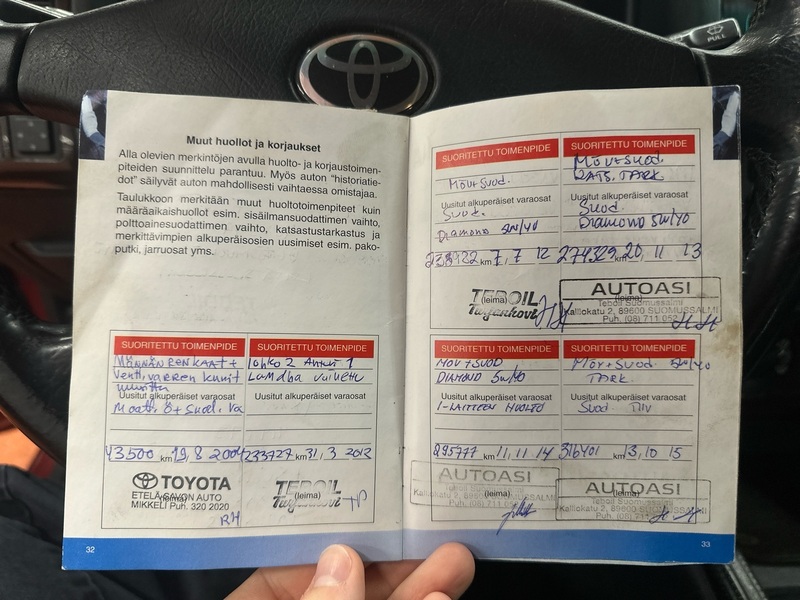 PULL
Muut huollot ja korjaukset
Alla olevien merkintöjen avulla huolto- ja korjaustoimen-
piteiden suunnittelu parantuu. Myös auton "historiatie-
dot" säilyvät auton mahdollisesti vaihtaessa omistajaa.
Taulukkoon merkitään muut huoltotoimenpiteet kuin
määräaikaishuollot esim. sisäilmansuodattimen vaihto,
polttoainesuodattimen vaihto, katsastustarkastus ja
merkittävimpien alkuperäisosien uusimiset esim. pako-
putki, jarruosat yms.
SUORITETTU TOIMENPIDE
MÄNNÄNRENKAAT +
VENT.VARREN KUMIT
Uusitut alkuperäiset varaosat
Moott. Ö + Suod.
43500 km 19, 8 2004
TOYOTA
(leima)
ETELÄ-SAVON AUTO
MIKKELI Puh. 320 2020
RH
SUORITETTU TOIMENPIDE
Lohko 2 Anturi 1
Lamdba vaihettu
Uusitut alkuperäiset varaosat
233727 km 31, 3 2012
TEBOIL
(leima)
32
SUORITETTU TOIMENPIDE
Möy+Suod.
Uusitut alkuperäiset varaosat
Suod.
Diamond 5W/40
km 7, 7 12
TEBOIL
(leima)
SUORITETTU TOIMENPIDE
Möy+Suod.
KATS. TARK.
Uusitut alkuperäiset varaosat
Suod.
Diamond 5W/40
274329 km 20, 11 13
AUTOASI
(leima)
Teboil Suomussalmi
Kalliokatu 2, 89600 SUOMUSSALMI
Puh. (08) 711 052
SUORITETTU TOIMENPIDE
MÖY + SUOD
DIAMOND 5W/40
Uusitut alkuperäiset varaosat
1-LAITTEEN HUOLTO
295777 km 11, 11 14
AUTOASI
(leima)
Kalliokatu 2, 89600 SUOMUSSALMI
SUORITETTU TOIMENPIDE
Möy+Suod. 5W/40
TARK.
Uusitut alkuperäiset varaosat
Suod. Tiiv
316401 km 13, 10 15
AUTOASI
(leima)
Teboil Suomussalmi
Kalliokatu 2, 89600 SUOMUSSALMI
33